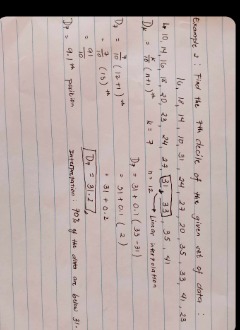 Example 2 : Find the 7th decile of the given set of data :
16, 18, 14, 10, 31, 24, 27, 20, 35, 33, 41, 23
10, 14, 16, 18, 20, 23, 24, 27, 31, 33, 35, 41
→ Linear interpolation
Dk = k/10 (n+1)th k = 7 n = 12
D7 = 7/10 (12+1)th
= 7/10 (13)th
= 91/10
D7 = 9.1th position
D7 = 31 + 0.1 (33 - 31)
= 31 + 0.1 (2)
= 31 + 0.2
D7 = 31.2
Interpretation: 70% of the data are below 31.